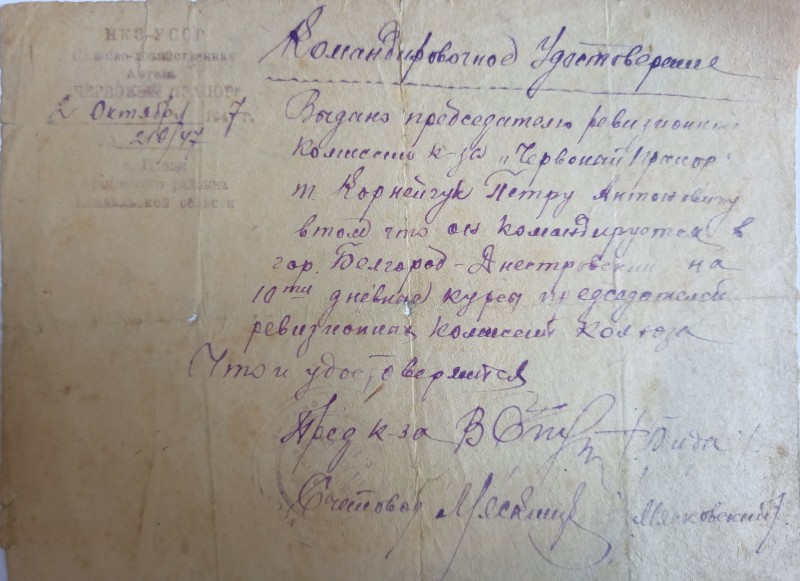 НКЗ-УССР
Сельско-хозяйственная
Артель
ЧЕРВОНЫЙ ПРАПОР
2 Октября 1947 г.
№ 218/47
с.
района
Измаильской области
Командировочное Удостоверение
Выдано председателю ревизионной
комиссии к-за "Червоный Прапор"
т. Корнейчук Петру Антоновичу
в том что он командируется в
гор. Белгород-Днестровский на
10ти дневные курсы председателей
ревизионных комиссий колхоза
Что и удостоверяется
Пред к-за
Счетовод Мясковский